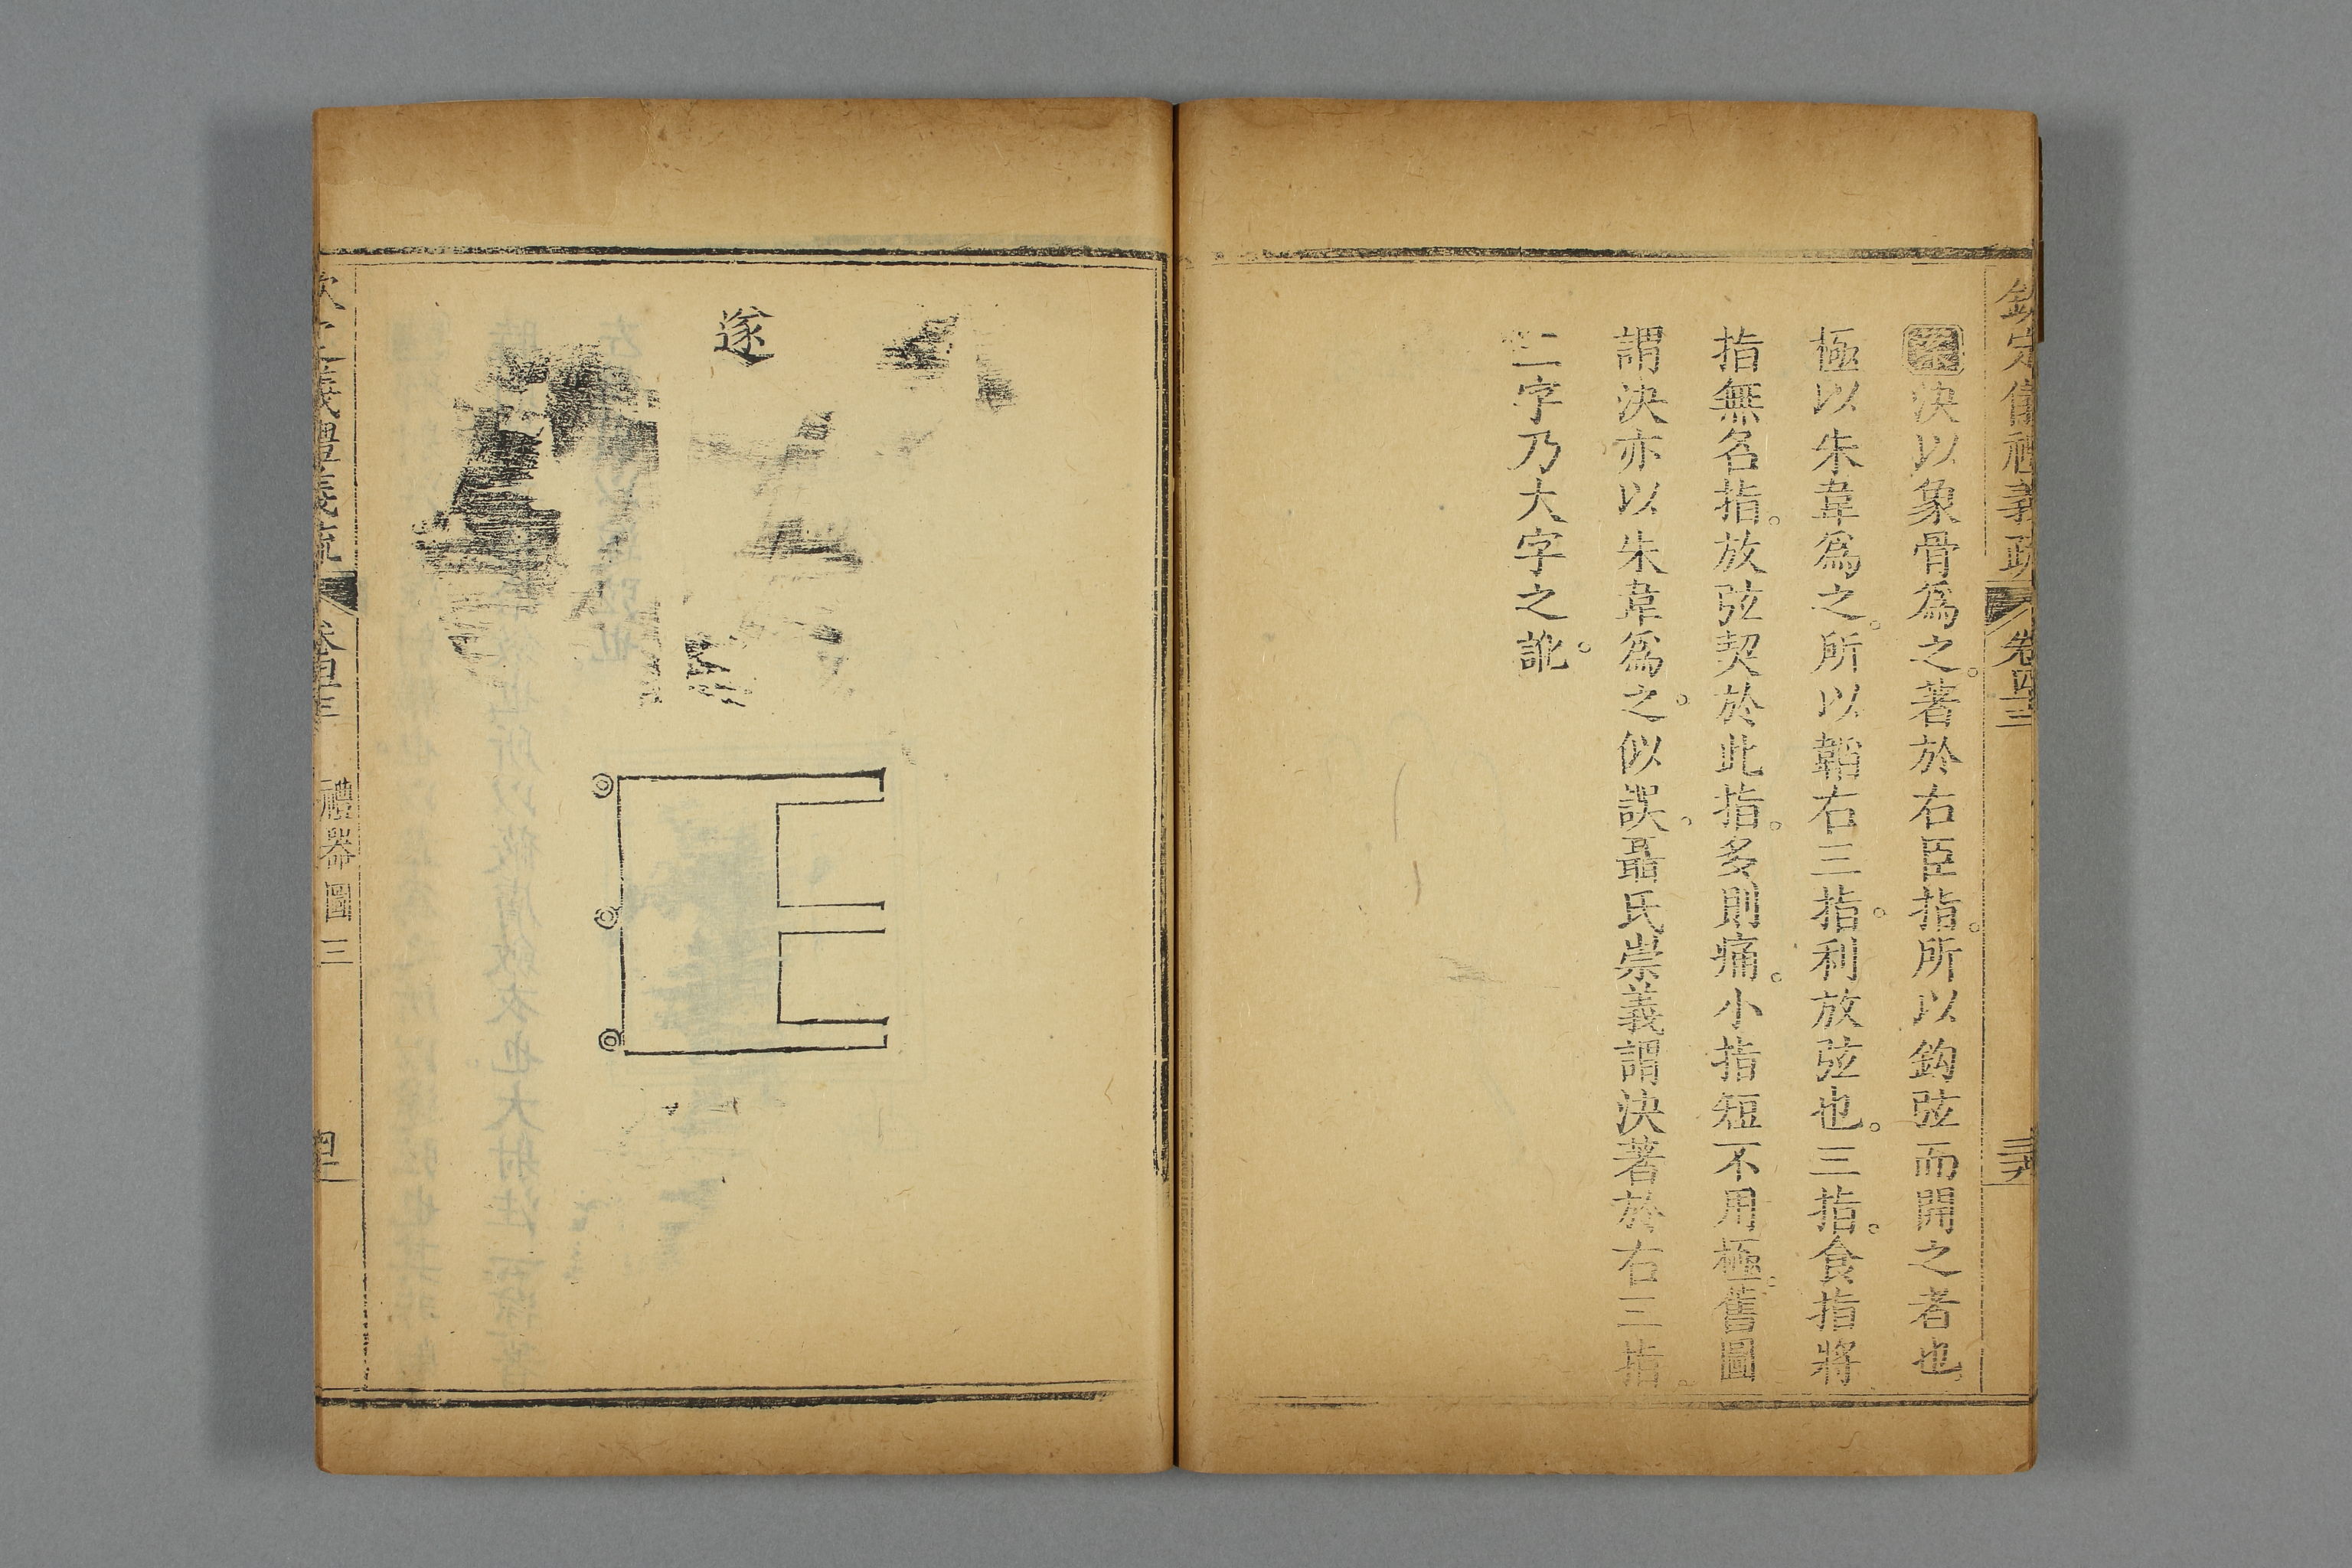 欽定儀禮義疏 卷四三
案決以象骨爲之。著於右臣指。所以鈎弦而開之者也。
極以朱韋爲之。所以韜右三指。利放弦也。三指。食指將
指無名指。放弦契於此指。多則痛。小指短不用極。舊圖
謂決亦以朱韋爲之。似誤。聶氏崇義謂決著於右三指。
三字乃大字之訛。
遂
欽定儀禮義疏 卷四三 禮器圖三